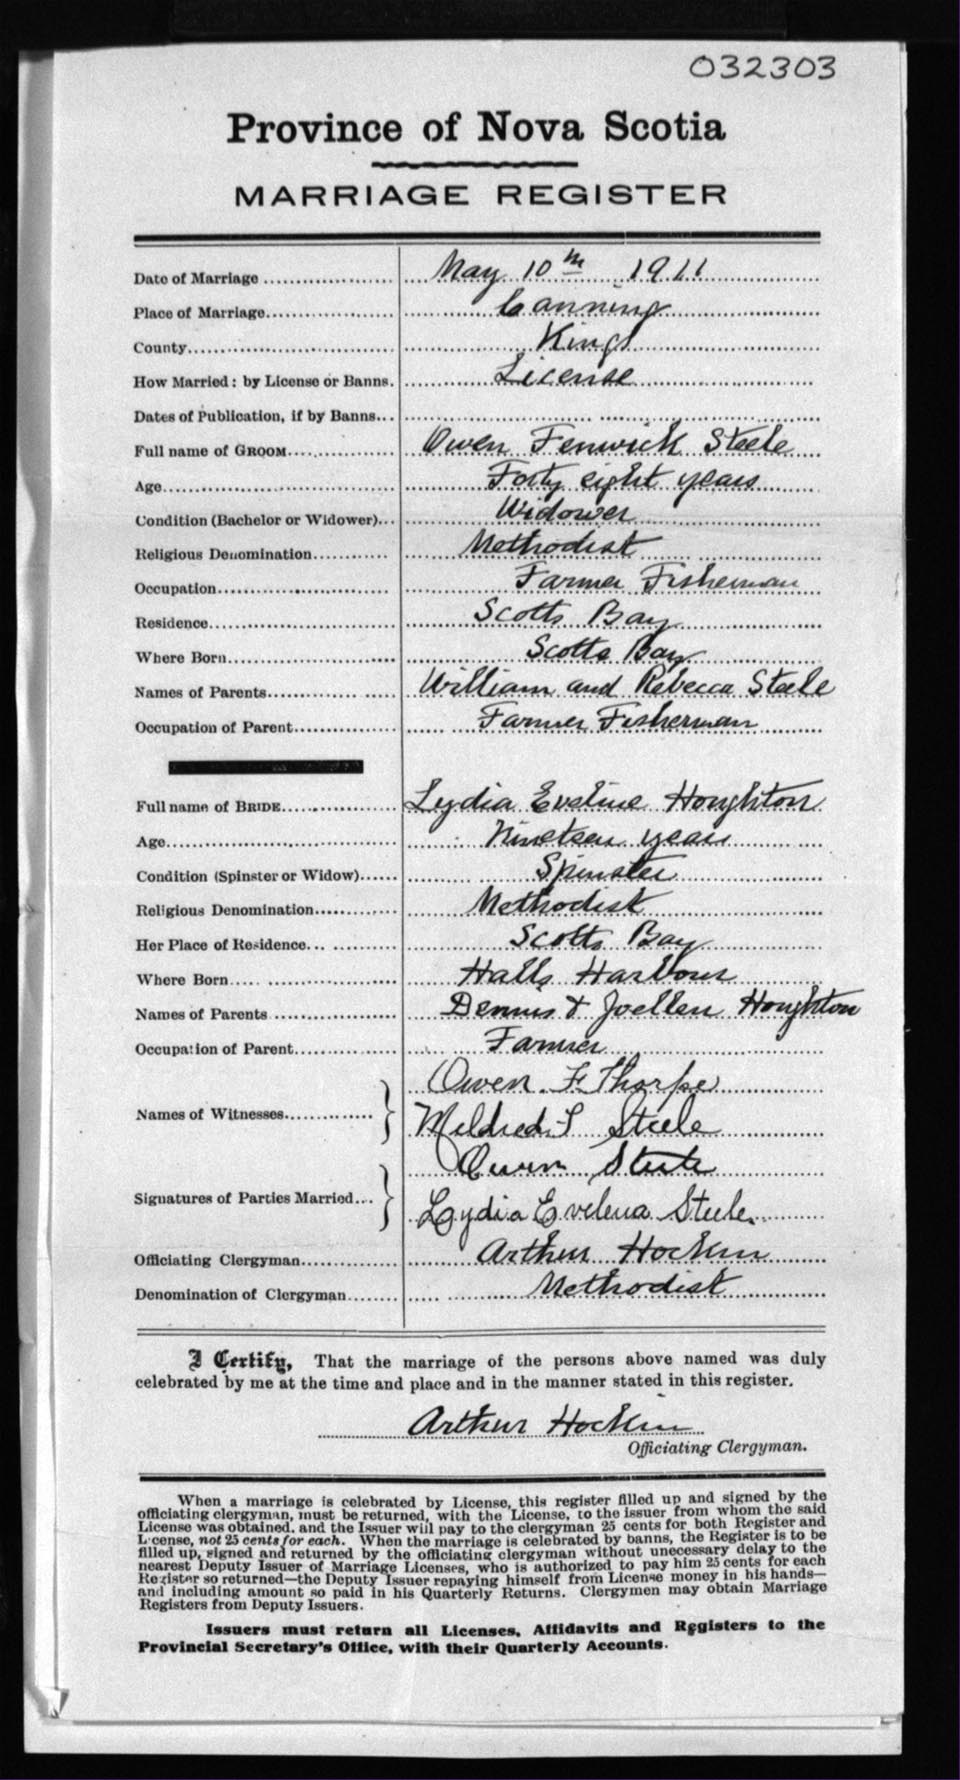 032303
Province of Nova Scotia
MARRIAGE REGISTER
Date of Marriage May 10th 1911
Place of Marriage Canning
County Kings
How Married: by License or Banns. License
Dates of Publication, if by Banns
Full name of GROOM Owen Fenwick Steele
Age Forty eight years
Condition (Bachelor or Widower) Widower
Religious Denomination Methodist
Occupation Farmer Fisherman
Residence Scotts Bay
Where Born Scotts Bay
Names of Parents William and Rebecca Steele
Occupation of Parent Farmer Fisherman
Full name of BRIDE Lydia Eveline Houghton
Age Nineteen years
Condition (Spinster or Widow) Spinster
Religious Denomination Methodist
Her Place of Residence Scotts Bay
Where Born Halls Harbour
Names of Parents Dennis & Joellen Houghton
Occupation of Parent Farmer
Owen F Thorpe
Names of Witnesses
Mildred S Steele
Owen Steele
Signatures of Parties Married
Lydia Evelena Steele
Officiating Clergyman Arthur Hockin
Denomination of Clergyman Methodist
I Certify, That the marriage of the persons above named was duly
celebrated by me at the time and place and in the manner stated in this register.
Arthur Hockin
Officiating Clergyman.
When a marriage is celebrated by License, this register filled up and signed by the
officiating clergyman, must be returned, with the License, to the issuer from whom the said
License was obtained, and the Issuer will pay to the clergyman 25 cents for both Register and
License, not 25 cents for each. When the marriage is celebrated by banns, the Register is to be
filled up, signed and returned by the officiating clergyman without unnecessary delay to the
nearest Deputy Issuer of Marriage Licenses, who is authorized to pay him 25 cents for each
Register so returned—the Deputy Issuer repaying himself from License money in his hands—
and including amount so paid in his Quarterly Returns. Clergymen may obtain Marriage
Registers from Deputy Issuers.
Issuers must return all Licenses, Affidavits and Registers to the
Provincial Secretary's Office, with their Quarterly Accounts.